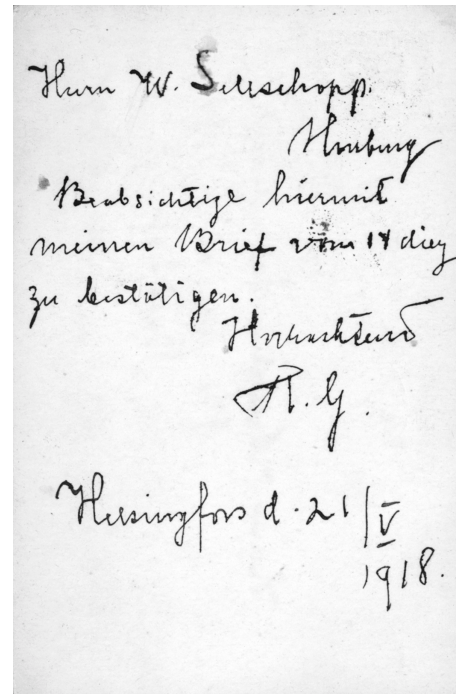 Herrn W. Sellschopp.
Hamburg
Beabsichtige hiermit
meinen Brief vom 17 dies
zu bestätigen.
Hochachtend
R. G.
Helsingfors d. 21/V
1918.